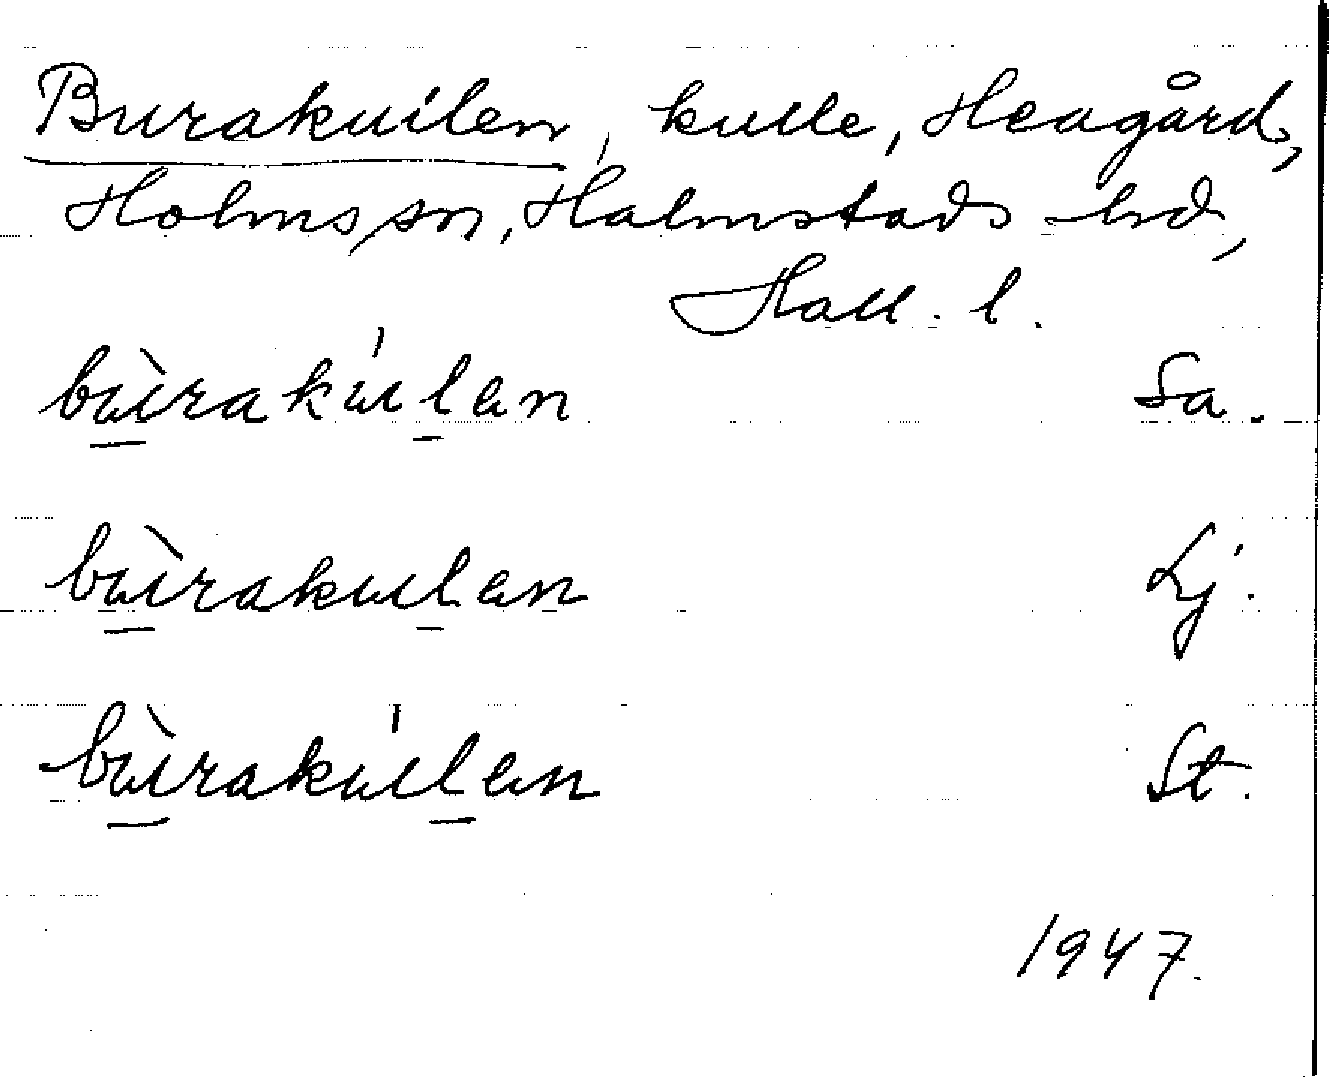 Burakullen, kulle, Heagård,
Holms sn, Halmstads hd,
Hall. l.
bùrakúlen Sa.
bùrakulen Lj.
bùrakúlen St.
1947.